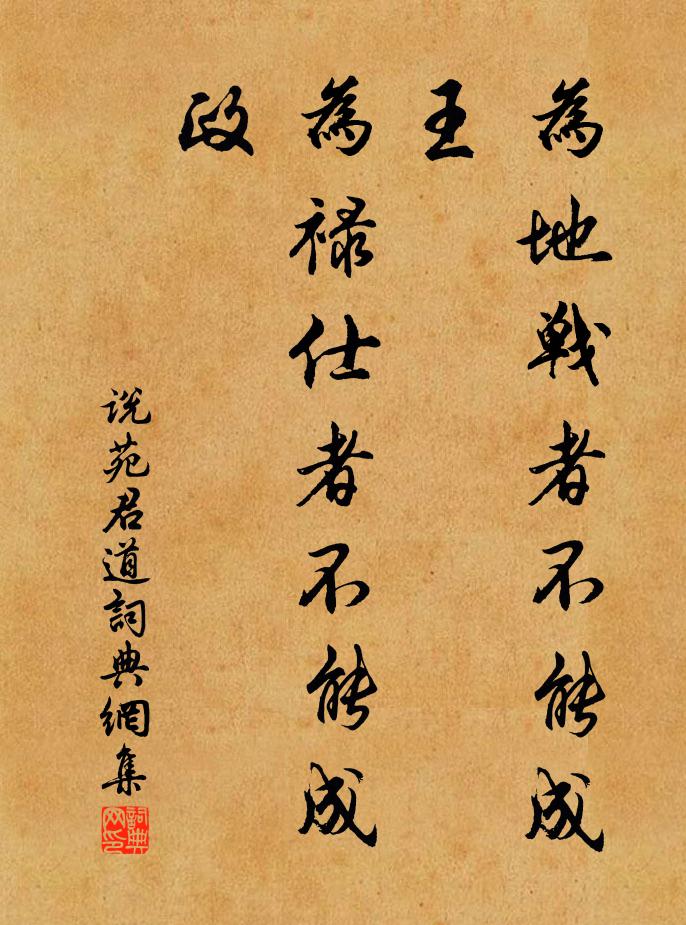 為地戰者不能成
王
為祿仕者不能成
政
説苑君道詞典網集
詞典
网印